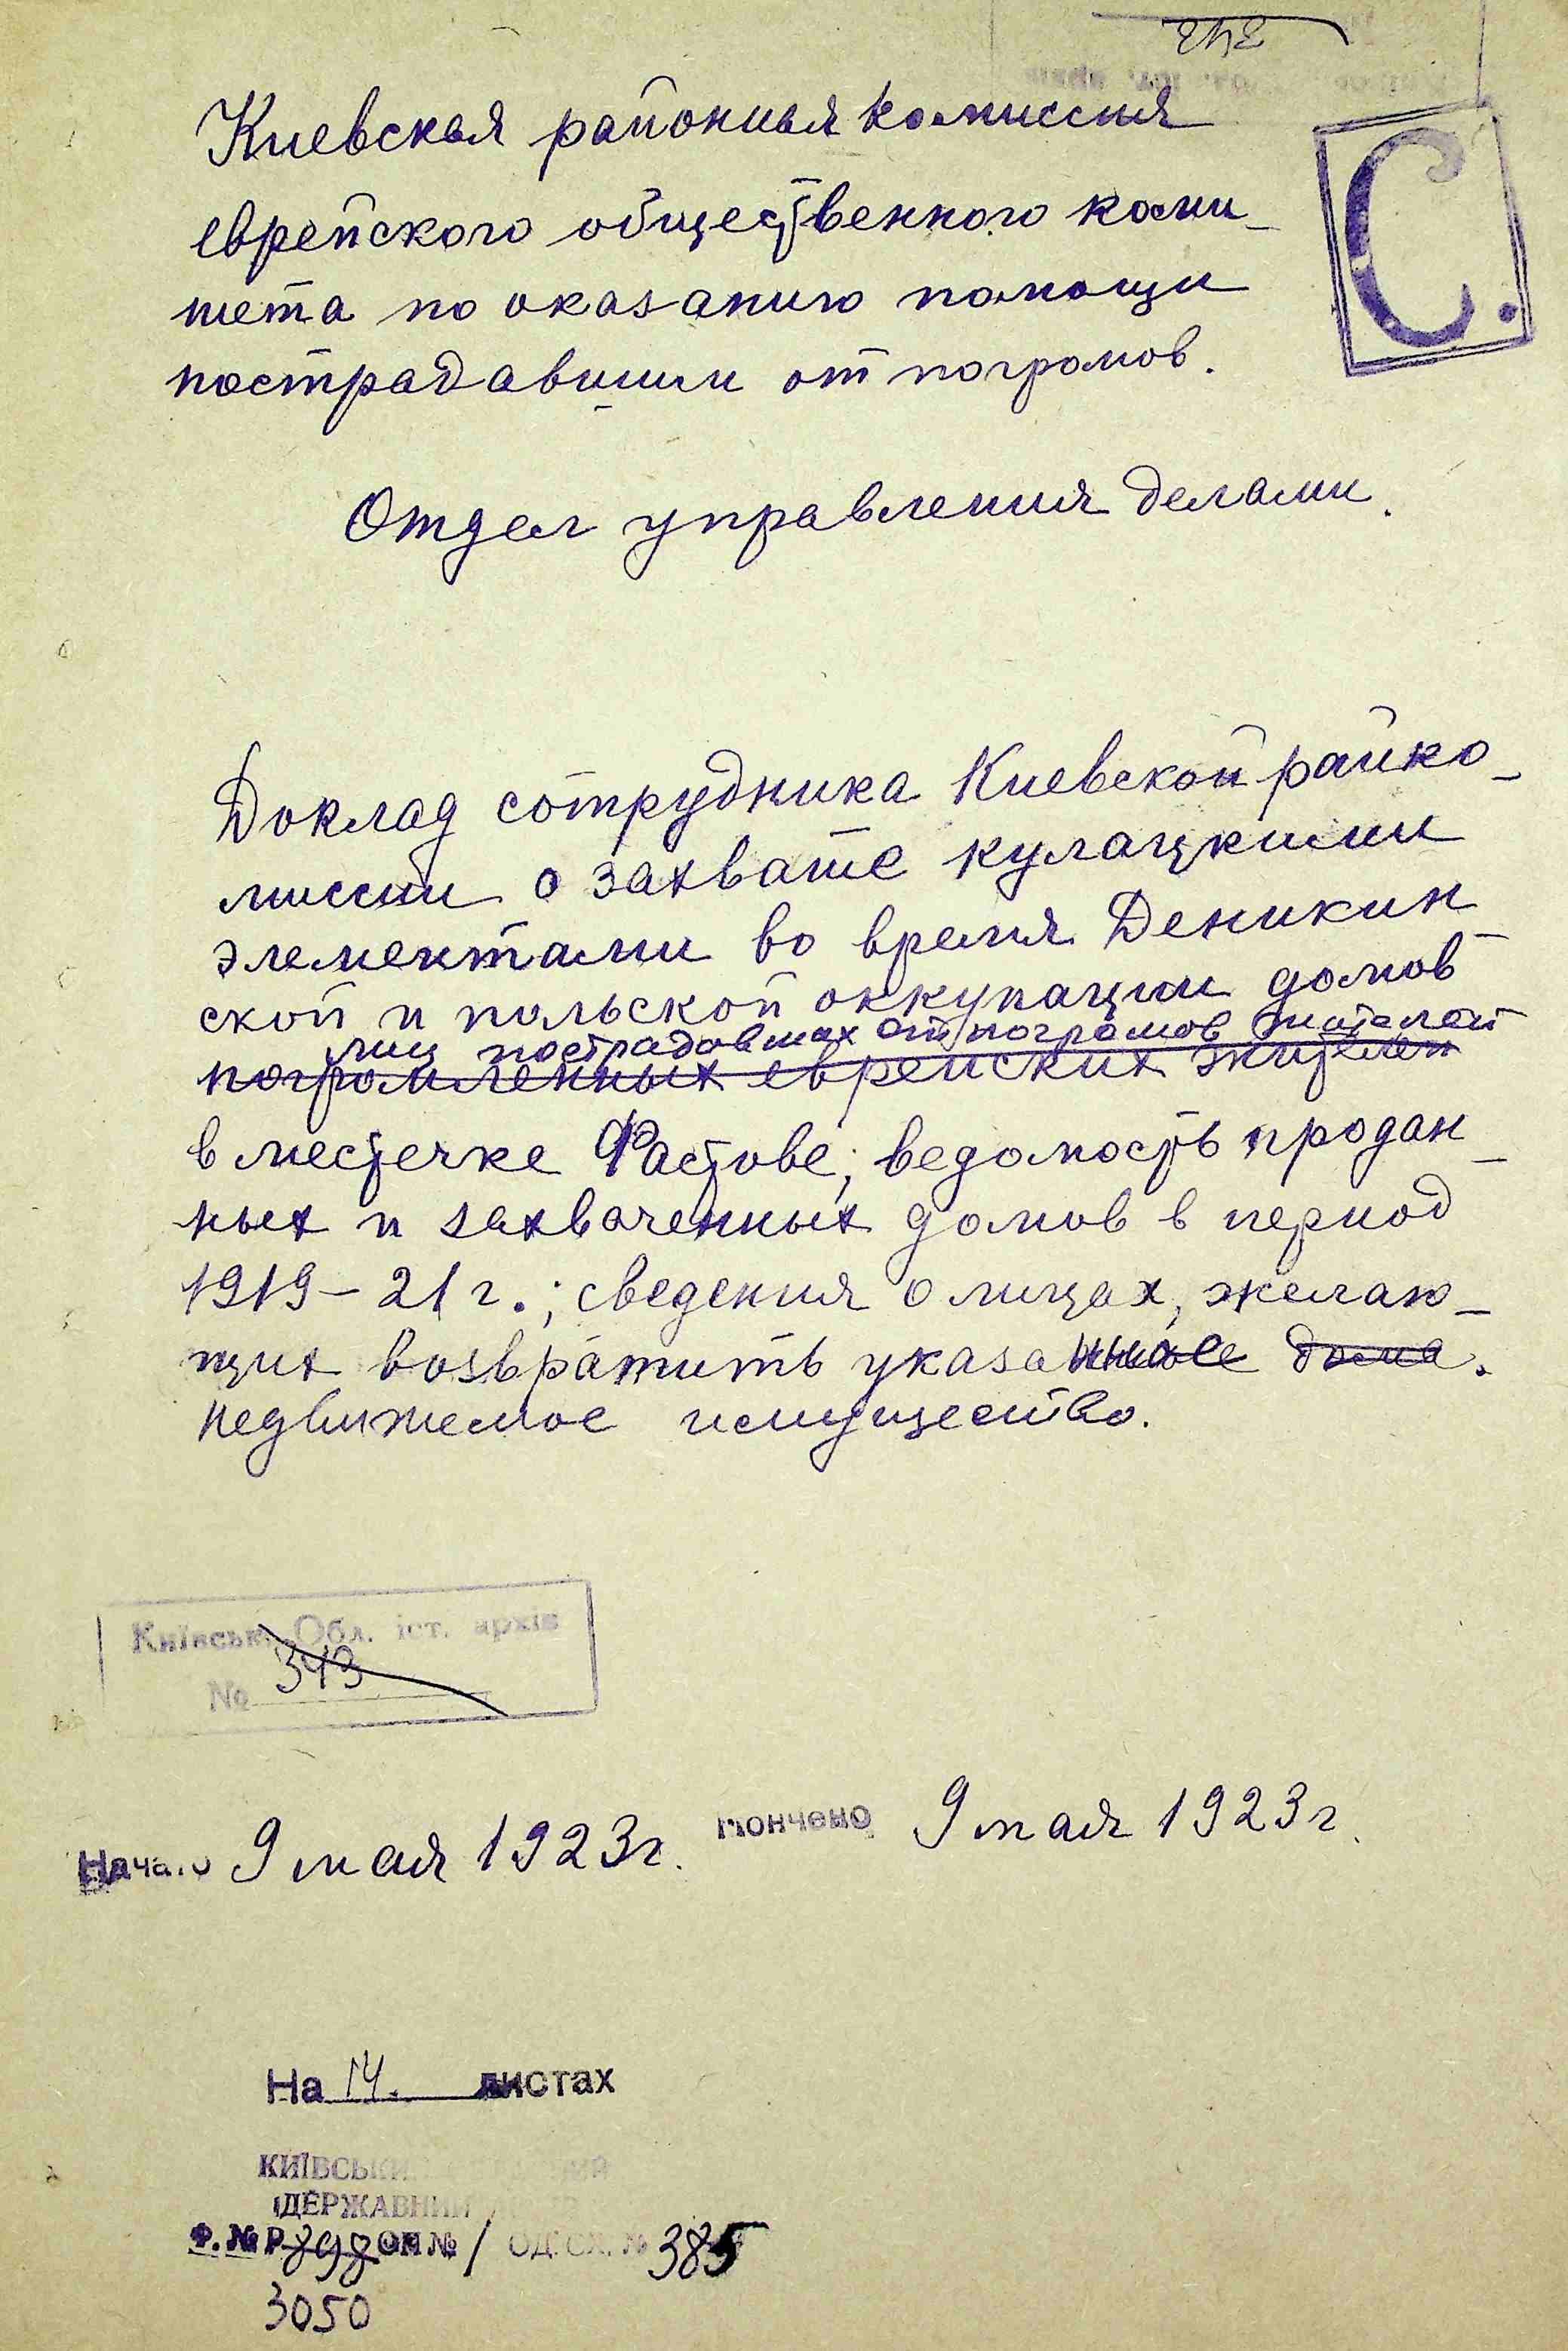 Киевская районная комиссия
еврейского общественного коми-
тета по оказанию помощи
пострадавшим от погромов.
С.
Отдел управления делами.
Доклад сотрудника Киевской райко-
миссии о захвате кулацкими
элементами во время Деникин-
ской и польской оккупации домов
лиц пострадавших от погромов жителей
погромленных еврейских жителей
в местечке Фастове; ведомость продан-
ных и захваченных домов в период
1919-21 г.; сведения о лицах, желаю-
щих возвратить указанное дома.
недвижимое имущество.
Київськ. Обл. іст. архів
№ 343
Начато 9 мая 1923г. кончено 9 мая 1923г.
На 14. листах
КИЇВСЬКИЙ
ДЕРЖАВНИЙ
Ф. № Р 898 ОП № 1 ОД. СХ. № 385
3050